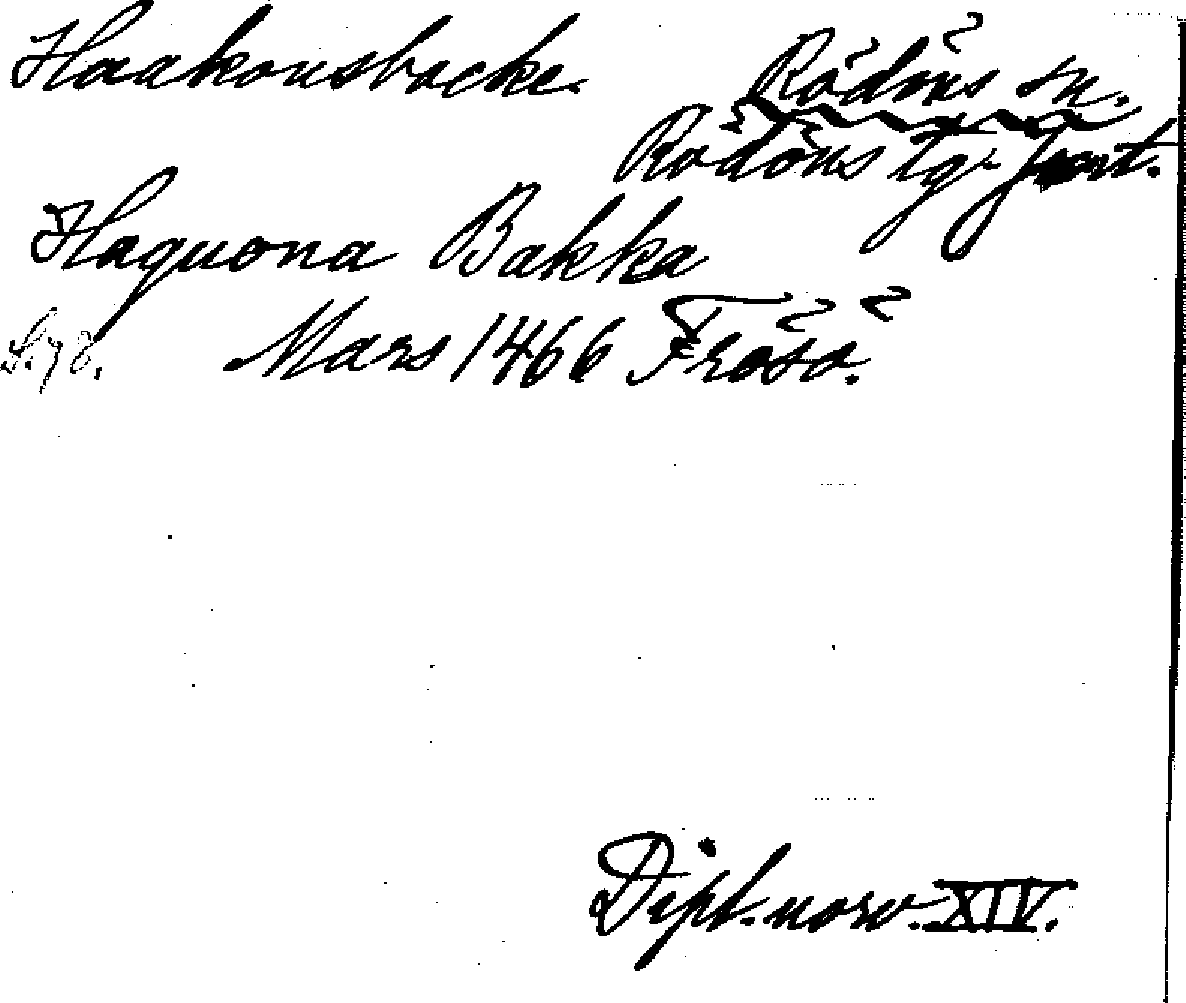 Haakonsbacke. Rödöns sn.
Rödöns tg. Jmt.
Haquona Bakka
S. 78. Mars 1466 Frösö.
Dipl. norv. XIV.